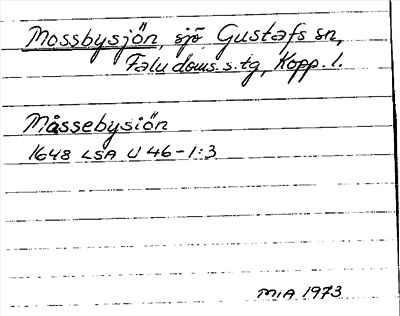 Mossbysjön, sjö, Gustafs sn,
Falu doms. s. tg, Kopp. l.
Måssebysiön
1648 LSA U 46-1:3
MIA 1973